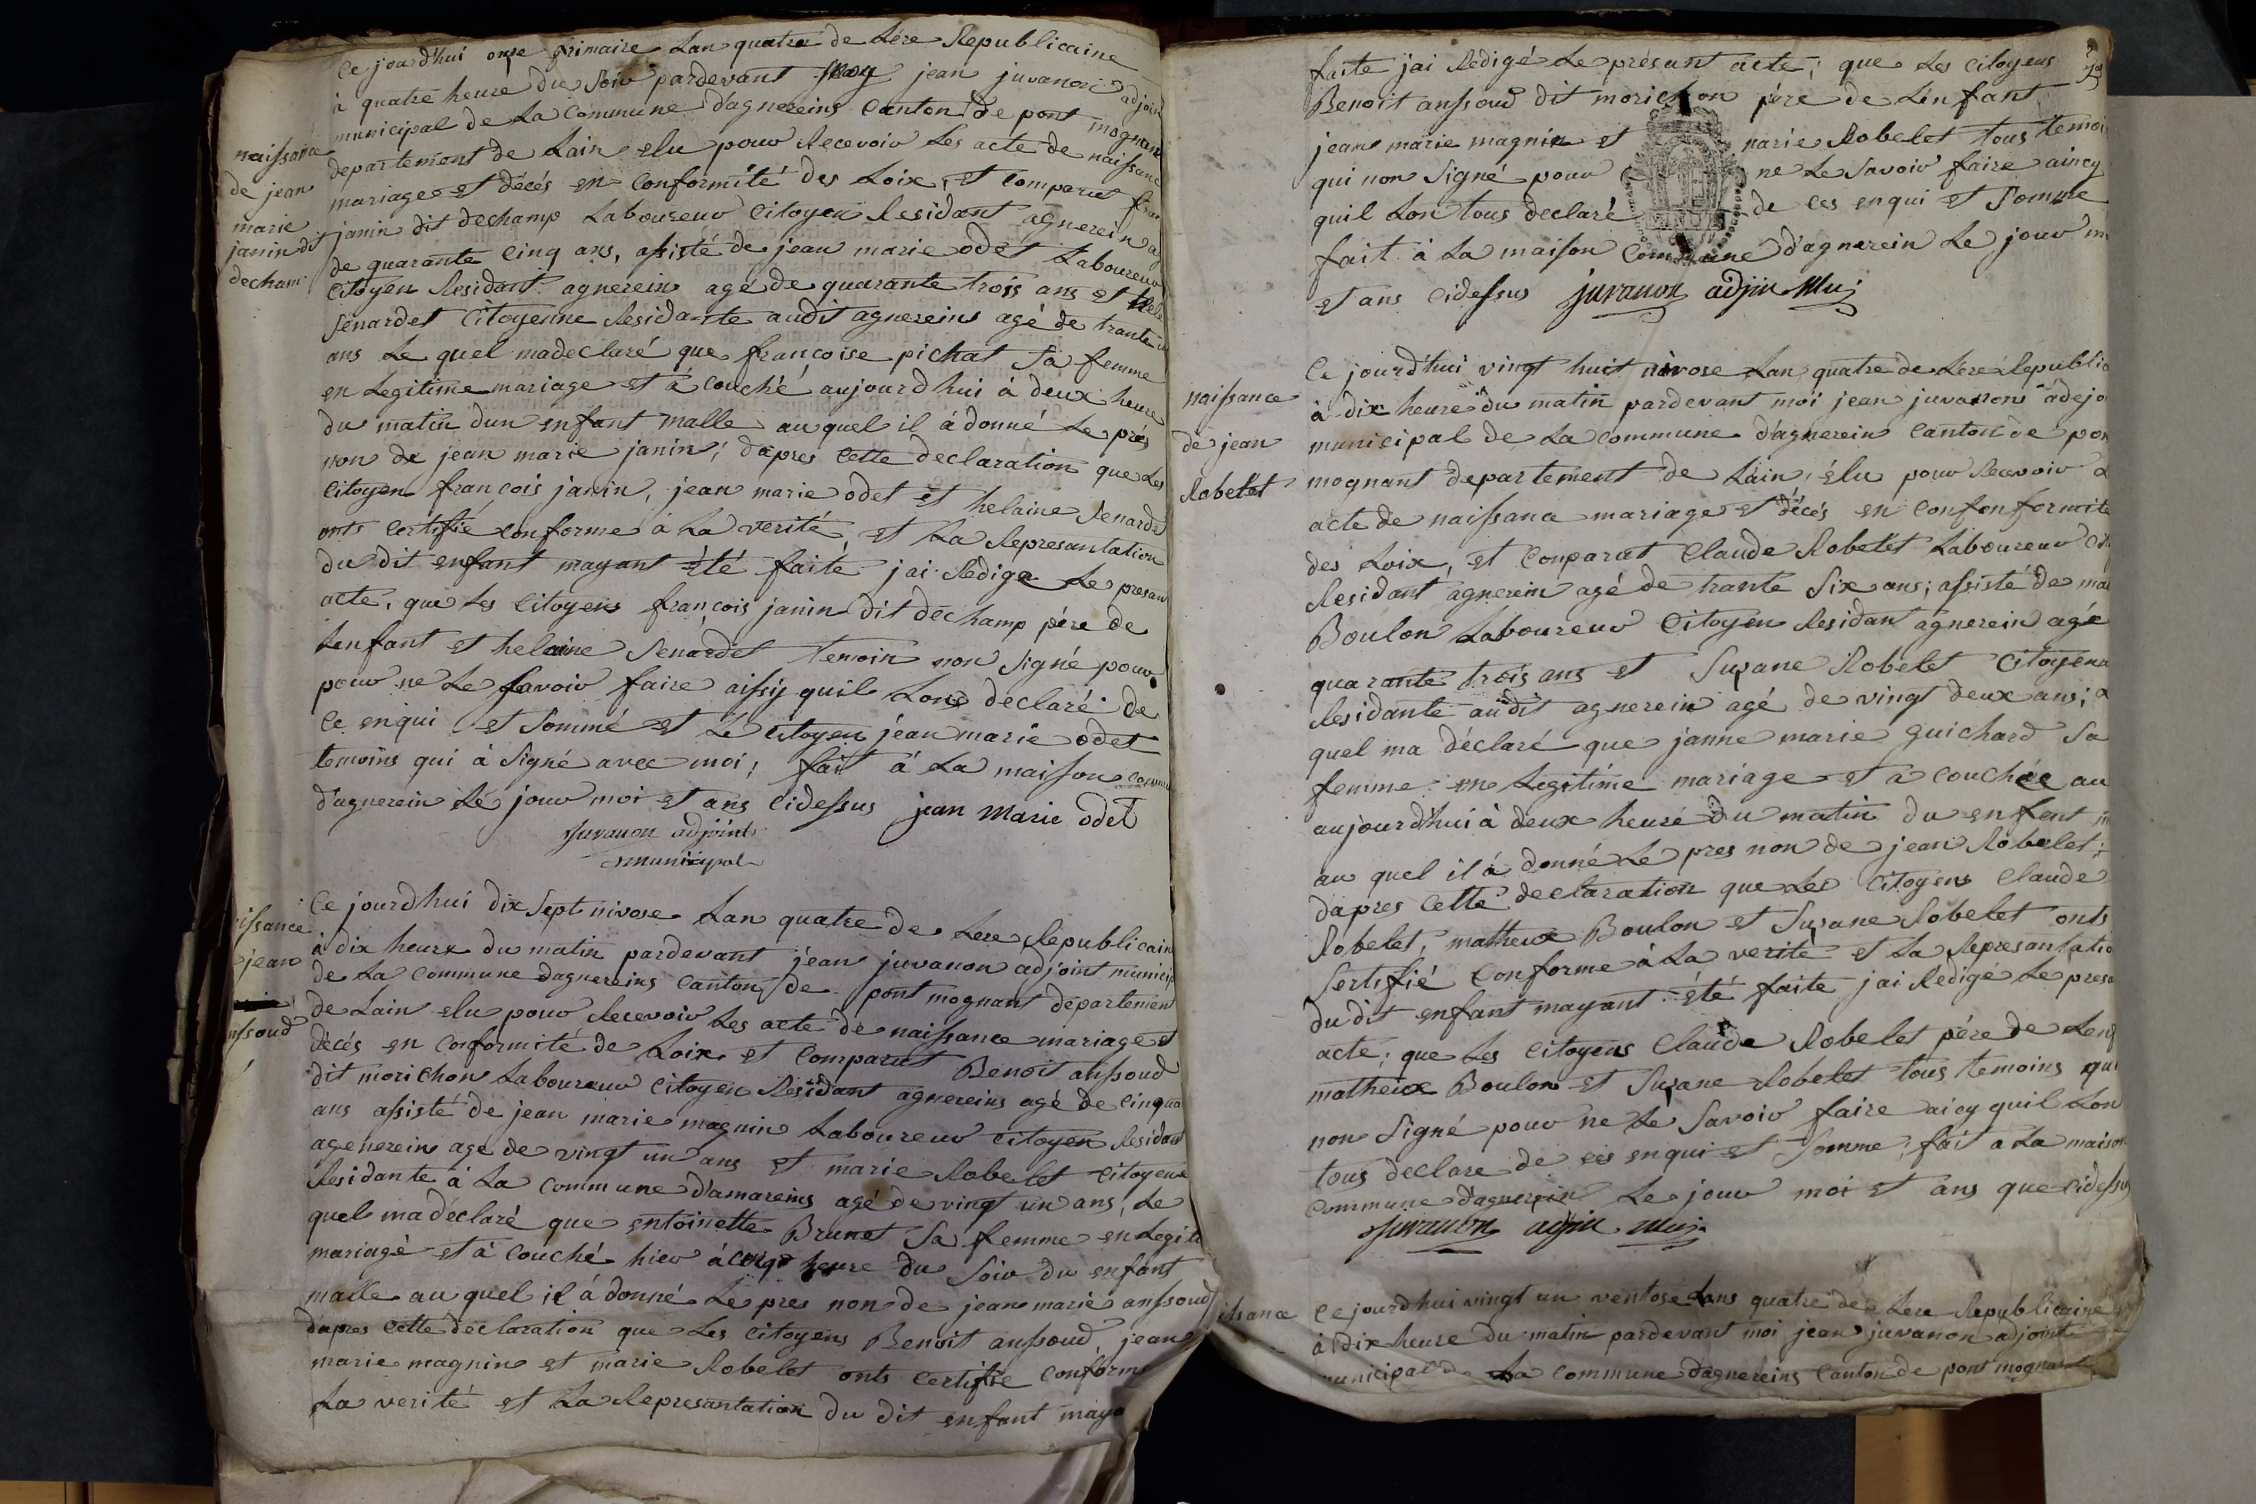 naissance
de jean
marie
janin dit
decham
Ce jourd'hui onse frimaire Lan quatre de Lére Republicaine
à quatre heure du Soir pardevant moy jean juvanon adjoint
municipal de La Commune d'agnereins Canton de pont mognant
departement de Lain elu pour Recevoir Les acte de naissance
mariage et décés en Conformité des Loix, et Comparut
janin dit dechamp Laboureur Citoyen Residant agnerein
de quarante Cinq ans, assisté de jean marie odet Laboureur
Citoyen Residant agnerein agé de quarante trois ans et
Senardet Citoyenne Residante audit agnereins agé de trante
ans Le quel madeclaré que françoise pichat Sa femme
en Legitime mariage et à Couché aujourd'hui à deux heure
du matin dun enfant malle auquel il à donné Le prés
non de jean marie janin; dapres Cette declaration que Les
Citoyen françois janin, jean marie odet et helaine Senardet
onts Certifié Conforme à La verité, et La Representation
du dit enfant mayant été faite jai Redige Le presan
acte, que Les Citoyens françois janin dit dechamp pére de
Lenfant et helaine Senardet temoin non Signé pour
pour ne Le Savoir faire aissy quil Lons declaré de
Ce enqui et Sommé et Le Citoyen jean marie odet
temoins qui à Signé avec moi; fait à La maison
d'agnerein Lé jour moi et ans Cidessus jean Marie odet
juvanon adjoint
municipal
issance
jean
nssoud
Ce jourd'hui dix Sept nivose Lan quatre de Lere Republicain
à dix heure du matin pardevant jean juvanon adjoint municip
de La Commune dagnereins Canton de pont mognant departement
de Lain elu pour Recevoir Les acte de naissance mariage et
décés en Conformité de Loix et Comparut Benoit anssoud
dit morichon Laboureur Citoyen Residant agnereins agé de Cinqua
ans assisté de jean marie magnin Laboureur Citoyen Residant
agenerein age de vingt un ans et marie Robelet Citoyene
Residante à La Commune d'amareins agé de vingt un ans, Le
quel madéclaré que entoinette Brunet Sa femme en Legiti
mariagé et à Couché hier à heure du Soir du enfant
malle auquel il à donné Le pres non de jean marie anssoud
dapres Cette declaration que Les Citoyens Benoit anssoud jean
marie magnin et marie Robelet onts Certifie Conforme
La verité et La Representation du dit enfant maya
faite jai Redigé Le présant acte; que Les Citoyens
Benoit anssoud dit morichon pére de Lenfant
jean marie magnin et marie Robelet tous temoi
qui non Signé pour ne Le Savoir faire aincy
quil Lon tous declaré de Ces enqui et Somme
fait à La maison Commune d'agnerein Le jour
et ans Cidessus juvanon adjiu Mu;
naissance
de jean
Robelet
Ce jourd'hui vingt huit nivose Lan quatre de Lére Republic
à dix heure du matin pardevant moi jean juvanon adejo
municipal de La Commune d'agnerein Canton de pon
mognant departement de Lain, élu pour Recevoir
acte de naissance mariage et décés en Confonformité
des Loix, et Comparut Claude Robelet Laboureur Cit
Residant agnerein agé de trante Six ans; assisté de ma
Boulon Laboureur Citoyen Residan agnerein agé
quarante trois ans et Susane Robelet Citoyena
Residante audit agnerein agé de vingt deux ans;
quel ma déclaré que janne marie guichard Sa
femme en Legitime mariage et à Couchée au
aujourd'hui à deux heuré du matin du enfent
au quel il à donné Lé pres non de jean Robelet;
dapres Cette declaration que Les Citoyens Claude
Robelet, matheux Boulon et Susane Robelet onts
Sertifié Conforme à La verité et La Represantatio
du dit enfant mayant été faite jai Redigé Le presa
acte; que Les Citoyens Claude Robelet pére de Lenf
matheux Boulon et Susane Robelet tous temoins qui
non Signé pour ne Le Savoir faire aicy quil Lon
tous declare de ces enqui et Somme; fait a La maison
Commune d'agnerein Le jour moi et ans que Cidessus
juvanon adjiu Mu;
issance
Ce jourd'hui vingt un ventose Lans quatre de Lere Republicaine
à dix heure du matin pardevant moi jean juvanon adjoint
municipal de La Commune d'agnereins Canton de pont mognant